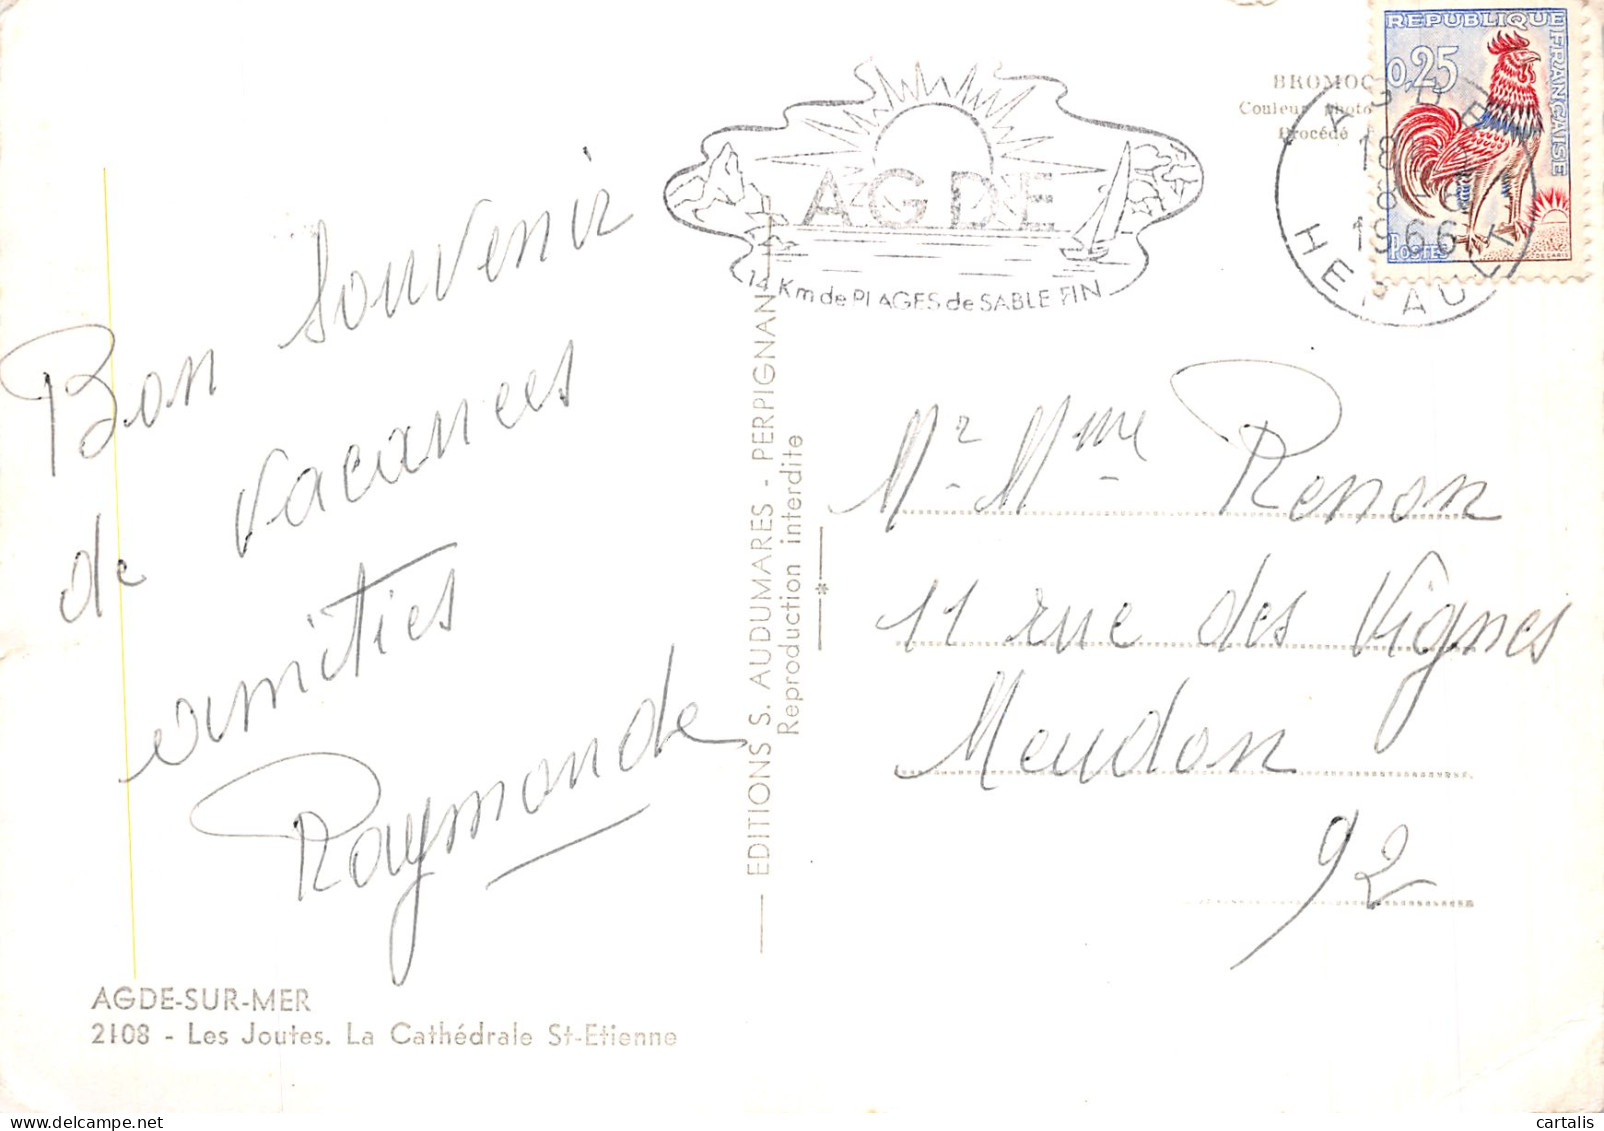 Bon souvenir
de vacances
amitiés
Raymonde
AGDE-SUR-MER
2108 - Les Joutes. La Cathédrale St-Etienne
EDITIONS S. AUDUMARES - PERPIGNAN
Reproduction interdite
AGDE
14 Km de PLAGES de SABLE FIN
BROMOC
Couleur Photo
Procédé
REPUBLIQUE FRANÇAISE
0,25
POSTES
DECARIS
AGDE
18
8 - 8
1966
HERAULT
Mr. Mme Renon
11 rue des Vignes
Meudon
92
cartalis